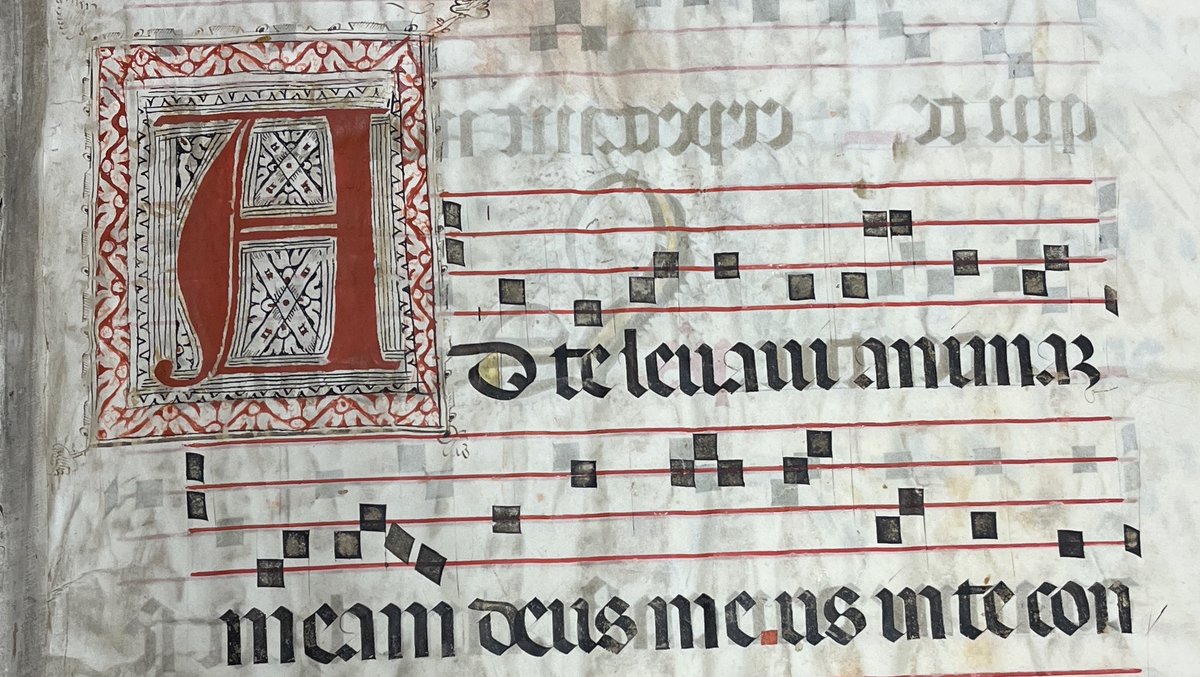 Ad te leuaui animaz
meam deus me us in te con